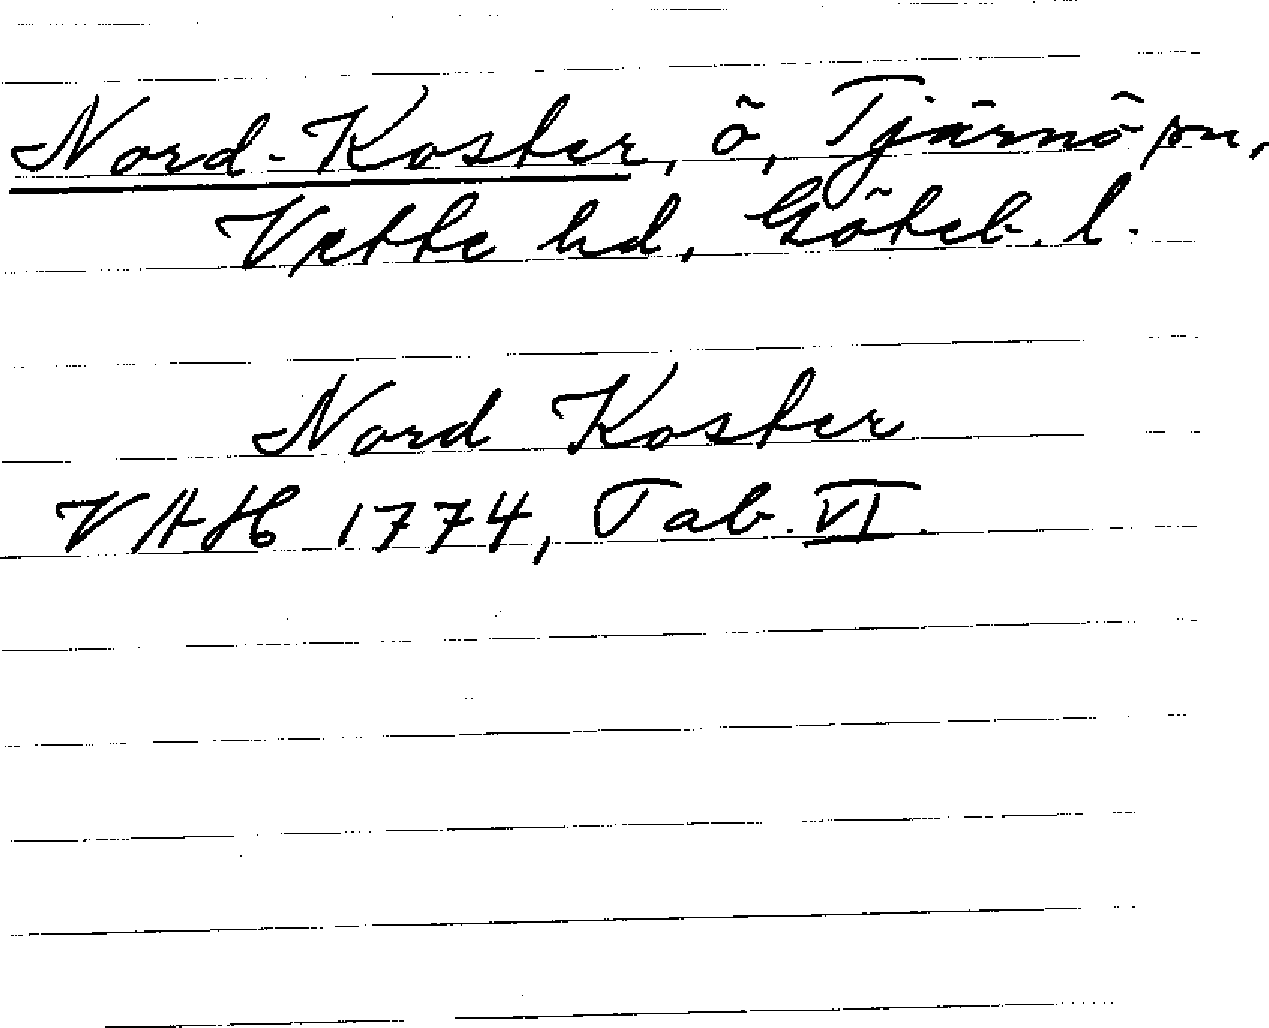 Nord-Koster, ö, Tjärnö sn,
Vette hd, Göteb. l.
Nord Koster
VAH 1774, Tab. VI.